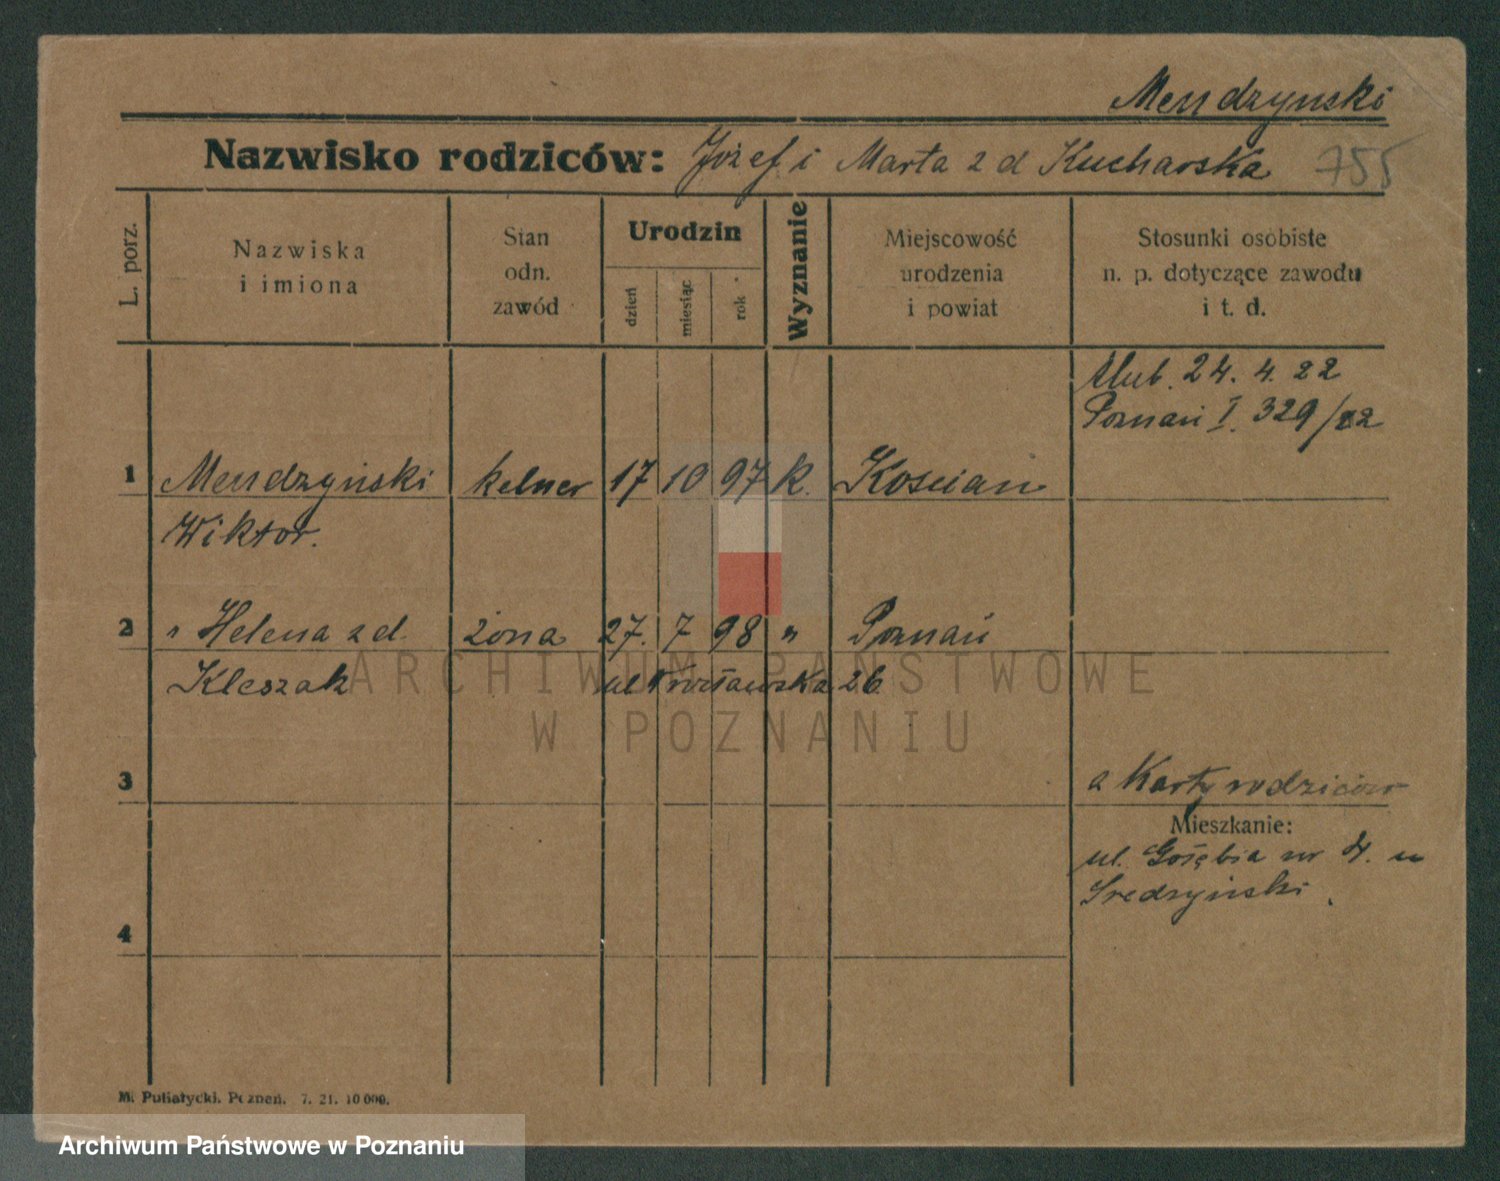 Mendzynski
Nazwisko rodziców: Józef i Marta z d Kucharska 755
L. porz.
Nazwiska
i imiona
Stan
odn.
zawód
Urodzin
dzień
miesiąc
rok
Wyznanie
Miejscowość
urodzenia
i powiat
Stosunki osobiste
n. p. dotyczące zawodu
i t. d.
ślub. 24. 4. 22
Poznań I. 329/22
1 Mendzyński kelner 17 10 97 k. Kościan
Wiktor.
2 " Helena z d. żona 27. 7 98 " Poznań
Kleszak ul 26
3 a Karty rodziców
Mieszkanie:
ul. Gołębia nr 4. u
Średzyński.
4
M. Putiatycki. Poznań. 7. 21. 10 000.
ARCHIWUM PAŃSTWOWE
W POZNANIU
Archiwum Państwowe w Poznaniu